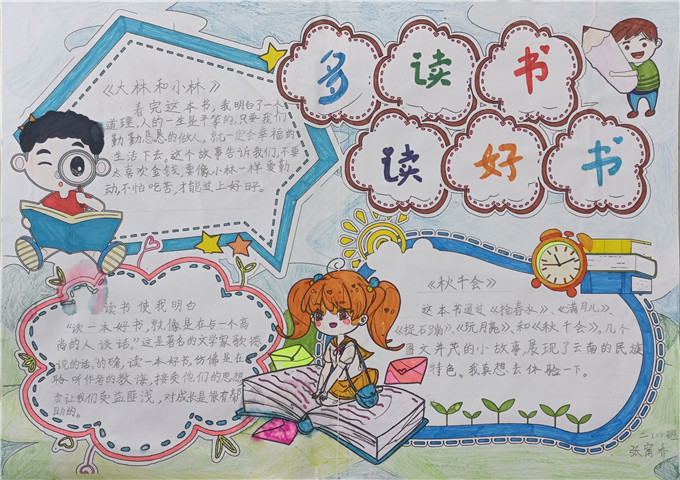 多读书
读好书
《大林和小林》
看完这本书，我明白了一个
道理，人的一生是平等的，只要我们
勤勤恳恳的做人，就一定会幸福的
生活下去。这个故事告诉我们，不要
太喜欢金钱，要像小林一样爱勤
动，不怕吃苦，才能过上好日子。
读书使我明白
“读一本好书，就像是在与一个高
尚的人谈话。”这是著名的文学家歌德
说的话。的确，读一本好书，仿佛是在
聆听作者的教诲，接受他们的思想
会让我们受益匪浅，对成长是很有帮
助的。
《秋千会》
这本书通过《抢春水》、《满月儿》、
《捉石鸡》、《玩月亮》、和《秋千会》，几个
图文并茂的小故事，展现了云南的民族
特色。我真想去体验一下。
二（1）班